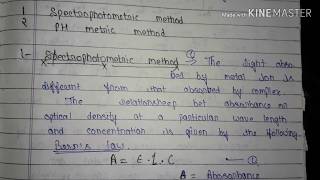 Made with KINEMASTER
1 Spectrophotometric method
2 PH metric method
1- Spectrophotometric method → The light absor
bed by metal ion is
different from that absorbed by complex.
The relationsheep bet absorbance or
optical density at a particular wave length
and concentration is given by the following
Beer's law.
A = ε.l.C — ①
A = Absorbance